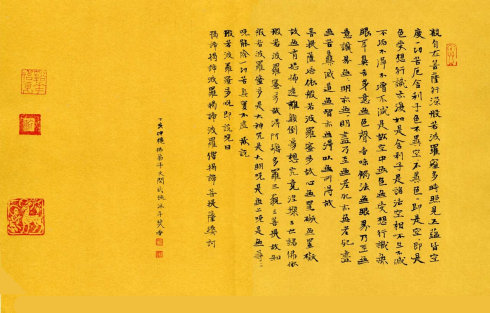 觀自在菩薩行深般若波羅蜜多時照見五蘊皆空
度一切苦厄舍利子色不異空空不異色色即是空空即是
色受想行識亦復如是舍利子是諸法空相不生不滅
不垢不淨不增不減是故空中無色無受想行識無
眼耳鼻舌身意無色聲香味觸法無眼界乃至無
意識界無無明亦無無明盡乃至無老死亦無老死盡
無苦集滅道無智亦無得以無所得故
菩提薩埵依般若波羅蜜多故心無罣礙無罣礙
故無有恐怖遠離顛倒夢想究竟涅槃三世諸佛依
般若波羅蜜多故得阿耨多羅三藐三菩提故知
般若波羅蜜多是大神咒是大明咒是無上咒是無等等
咒能除一切苦真實不虛故說
般若波羅蜜多咒即說咒曰
揭諦揭諦波羅揭諦波羅僧揭諦菩提薩婆訶
佛弟子